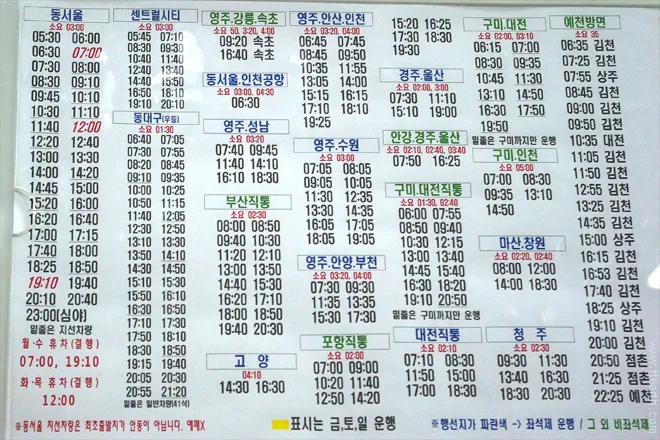 동서울
소요 03:00
05:30 06:00
06:30 07:00
07:30 08:00
08:30 09:10
09:45 10:10
10:30 11:10
11:40 12:00
12:20 12:40
13:00 13:30
14:00 14:20
14:45 15:00
15:20 16:00
16:20 16:40
17:00 17:15
17:40 18:00
18:25 18:50
19:10 19:40
20:10 20:40
23:00(심야)
밑줄은 지선차량
월·수 휴차(결행)
07:00, 19:10
화·목 휴차(결행)
12:00
센트럴시티
소요 03:00
05:45 07:10
08:30 09:30
10:40 11:40
12:40 13:40
14:40 15:40
16:50 18:00
19:10 20:10
동대구(우등)
소요 01:30
06:40 07:05
07:30 07:55
08:20 08:45
09:10 09:35
10:00 10:25
10:50 11:15
11:40 12:05
12:30 12:50
13:10 13:30
13:50 14:10
14:30 14:50
15:10 15:30
15:50 16:10
16:30 16:50
17:10 17:30
17:50 18:10
18:30 18:50
19:15 19:40
20:05 20:30
20:55 21:20
밑줄은 일반차량(41석)
영주.강릉.속초
소요 50, 3:20, 4:00
09:20 속초
16:40 속초
동서울.인천공항
소요 03:00, 04:30
06:30
영주.성남
소요 03:20
07:40 09:45
11:40 14:10
16:30 18:30
부산직통
소요 02:30
08:00 08:50
09:30 10:10
10:50 11:30
12:10 12:50
13:30 14:10
14:50 15:30
16:20 17:10
18:00 18:50
19:40 20:30
고 양
04:10
14:30 16:30
영주.안산.인천
소요 03:00, 03:30
06:45 07:45
08:45 09:45
10:35 11:55
13:05 14:00
15:15 16:15
17:10 18:10
19:25
영주.수원
소요 03:00
07:05 08:05
09:05 10:30
11:30 12:30
13:30 14:35
15:05 16:05
18:05 19:05
영주.안양.부천
소요 03:20, 04:00
07:30 09:30
11:35 13:35
15:35 17:30
포항직통
소요 02:00
07:00 09:00
10:20 11:40
12:50 14:20
15:20 16:25
17:30 18:30
19:30
경주.울산
소요 02:00, 3:00
07:30 11:10
15:10 19:00
안강.경주.울산
소요 02:10, 02:40, 03:40
07:50 16:25
구미.대전직통
소요 01:30, 02:40
06:00 07:55
08:50 09:40
10:30 12:15
13:10 14:00
14:45 15:40
16:30 18:20
19:10 20:50
밑줄은 구미까지만 운행
대전직통
소요 02:10
07:10 08:30
11:50 15:00
17:00 18:50
구미.대전
소요 02:00, 03:10
06:15 07:00
08:30 09:35
10:45 11:30
13:30 14:50
16:30 17:50
19:50
밑줄은 구미까지만 운행
구미.인천
소요 05:00
07:00 08:30
09:35 13:10
14:50
마산.창원
소요 02:20, 02:40
08:00 12:00
14:00 18:30
청 주
소요 02:30
09:30 11:30
13:40 16:30
예천방면
소요 35
06:35 김천
07:05 김천
07:55 상주
08:45 김천
09:25 김천
10:35 대전
11:05 김천
11:50 김천
12:55 김천
13:25 김천
14:35 김천
15:00 상주
16:15 김천
16:53 김천
17:40 김천
18:25 상주
19:10 김천
20:00 김천
20:50 점촌
21:25 점촌
22:25 예천
※동서울 지선차량은 최초출발지가 안동이 아닙니다. 예매X
표시는 금,토,일 운행
※행선지가 파란색 -> 좌석제 운행 / 그 외 비좌석제